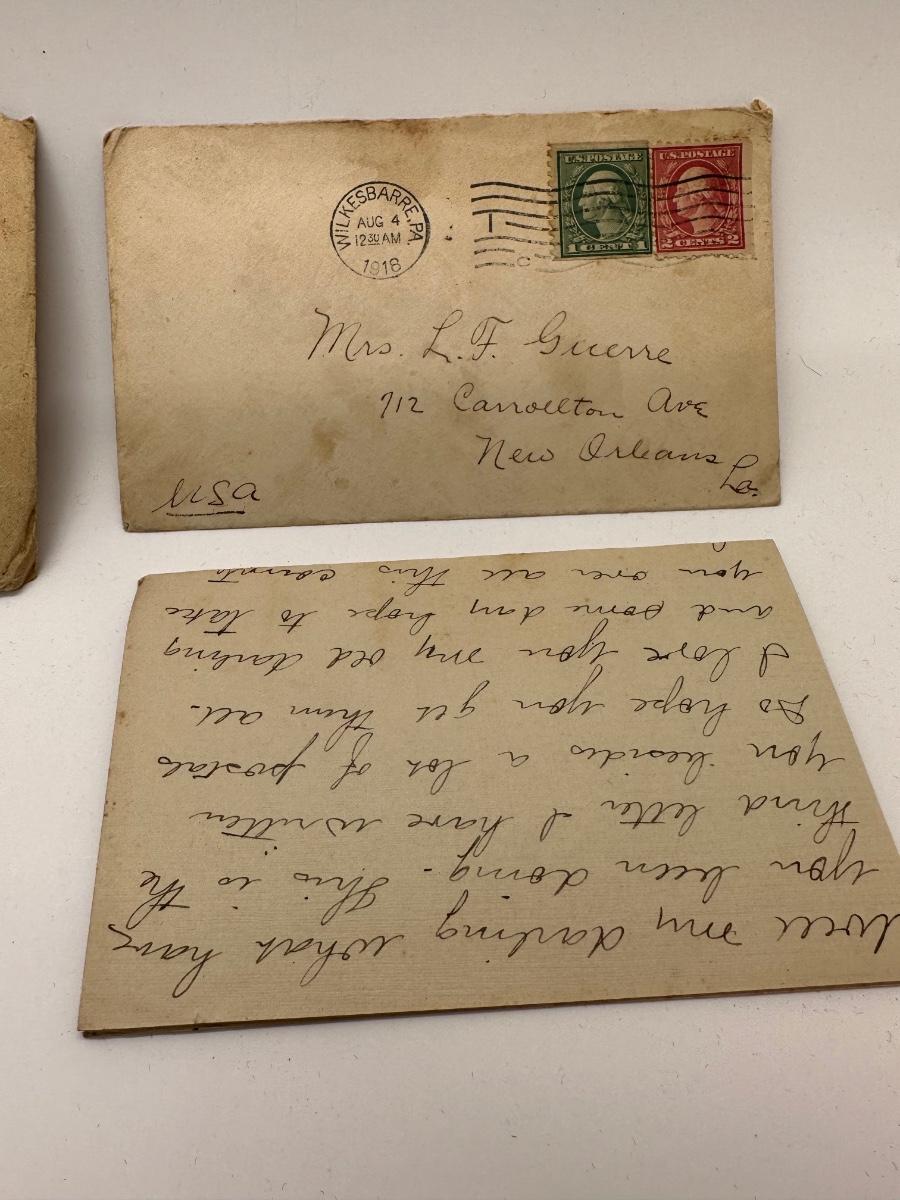 WILKESBARRE, PA.
AUG 4
12 30 AM
1918
U.S. POSTAGE
1 CENT 1
U.S. POSTAGE
2 CENTS 2
Mrs. L. F. Guerre
712 Carrollton Ave
New Orleans
La.
USA
Well my darling what have
you been doing. This is the
third letter I have written
you besides a lot of postals
so hope you get them all.
I love you my old darling
and some day hope to take
you over all this